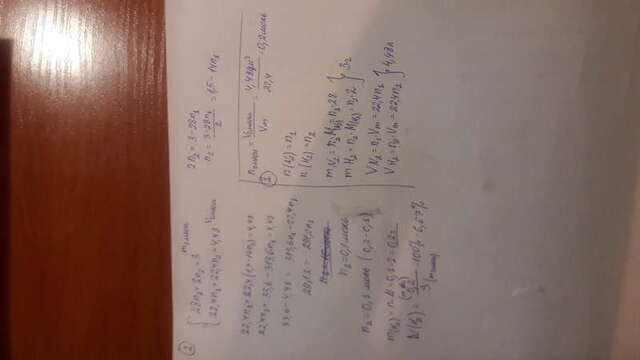 2
m смеси
28n₁ + 2n₂ = 3
22,4n₁ + 22,4n₂ = 4,48 V смеси
2n₂ = 3 - 28n₁
n₂ = (3 - 28n₁)/2 = 1,5 - 14n₁
22,4n₁ + 22,4(1,5 - 14n₁) = 4,48
22,4n₁ + 33,6 - 313,6n₁ = 4,48
33,6 - 4,48 = 313,6n₁ - 22,4n₁
29,12 = 291,2n₁
n₁ = 0,1 моль
n₂ = 0,1 моль (0,2 - 0,1)
m(H₂) = n · M = 0,1 · 2 = 0,2г
W(H₂) = 0,2 (m H₂) / 3 (m смеси) · 100% = 6,67%
1
n смеси = V смеси / Vm = 4,48 дм³ / 22,4 = 0,2 моль
n(N₂) = n₁
n(H₂) = n₂
m N₂ = n₁ · M(N₂) = n₁ · 28
m H₂ = n₂ · M(H₂) = n₂ · 2 } 3г
V N₂ = n₁ · Vm = 22,4n₁
V H₂ = n₂ · Vm = 22,4n₂ } = 4,48л